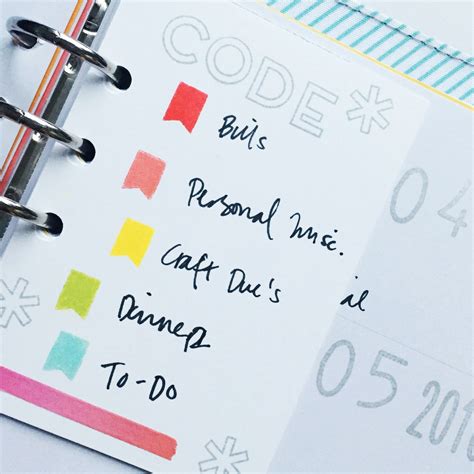 CODE*
Bills
Personal Misc.
Craft Due's
Dinner
To-Do
04
05
201